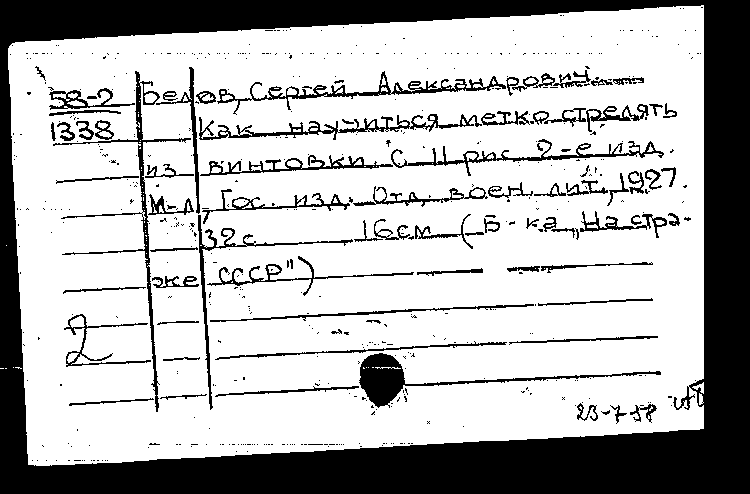 58-2 Белов, Сергей Александрович.
1338 Как научиться метко стрелять
из винтовки. С 11 рис. 2-е изд.
М-Л, Гос. изд. Отд. воен. лит., 1927.
32 с. 16 см (Б-ка „На стра-
же СССР")
2
23-7-58